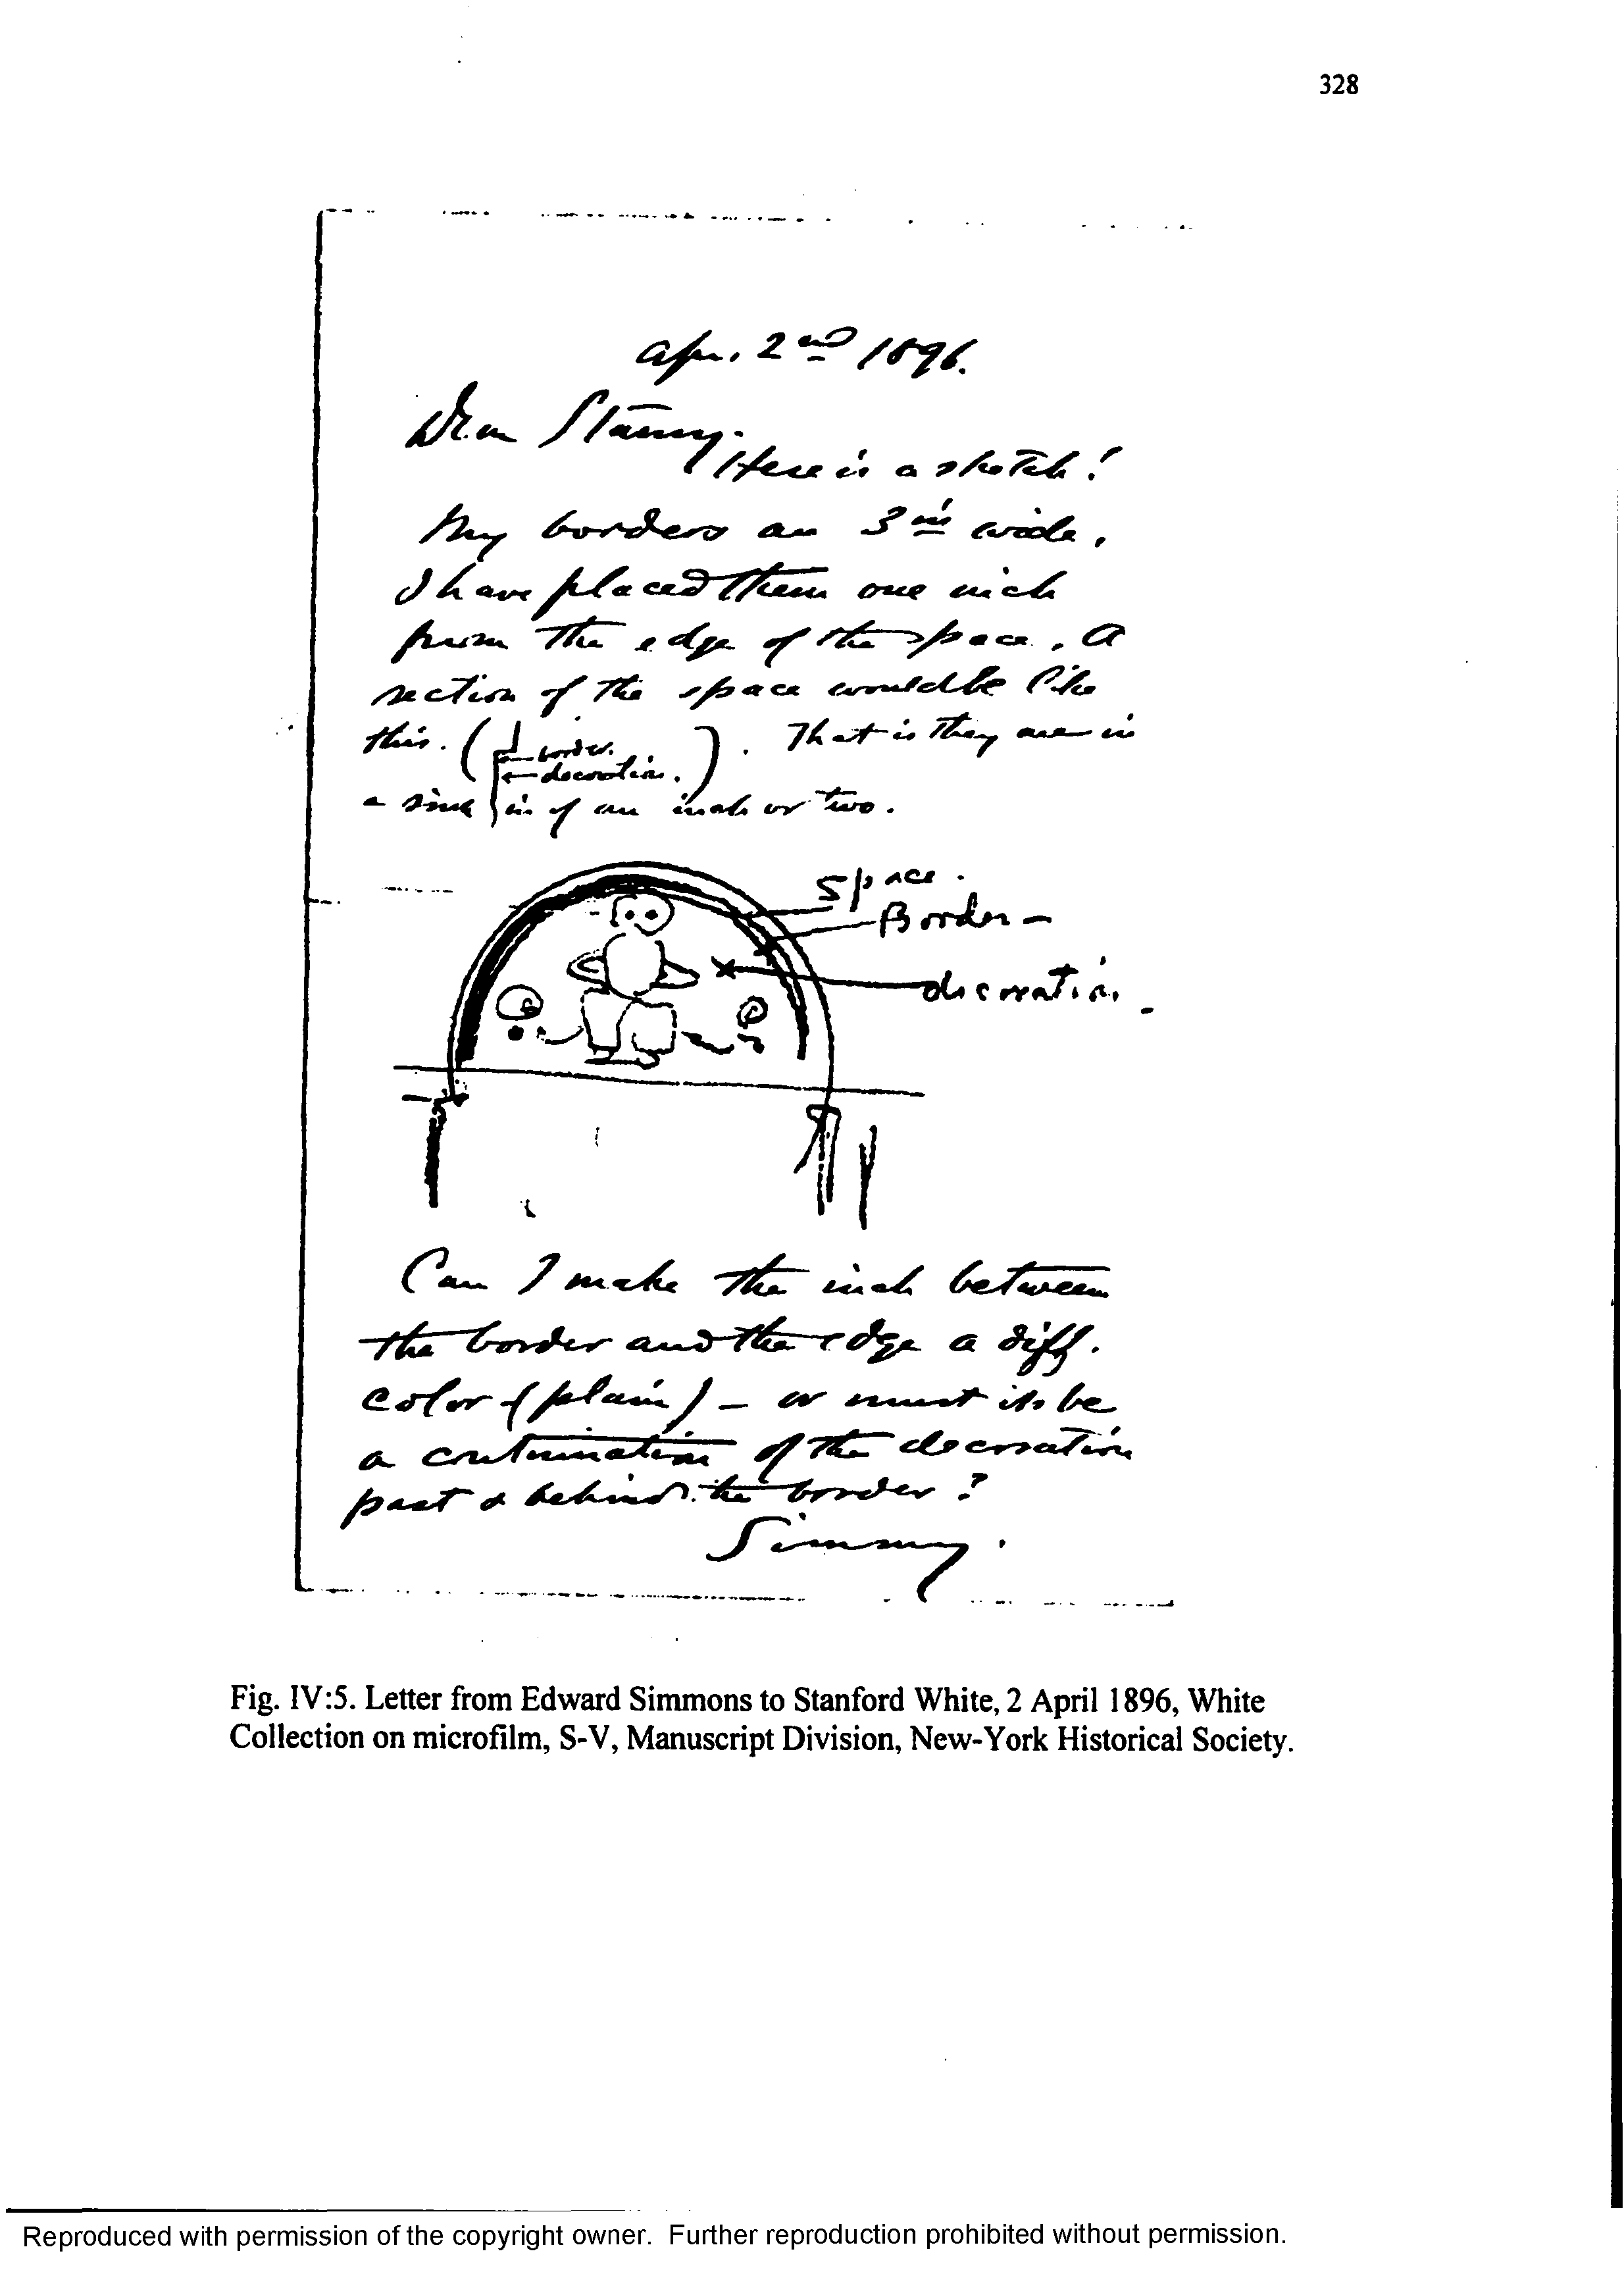 328
Apr. 2nd 1896.
Dear Stanny.
Here is a sketch!
My borders are 3 ins wide,
I have placed them one inch
from the edge of the space. A
section of the space would be like
this. (
border.
decoration.
). That is they are in
a sink in of an inch or two.
Space.
Border –
decoration –
Can I make the inch between
the border and the edge a diff.
color (plain) – or must it be
a continuation of the decoration
past & behind the border?
Simmy.
Fig. IV:5. Letter from Edward Simmons to Stanford White, 2 April 1896, White
Collection on microfilm, S-V, Manuscript Division, New-York Historical Society.
Reproduced with permission of the copyright owner. Further reproduction prohibited without permission.